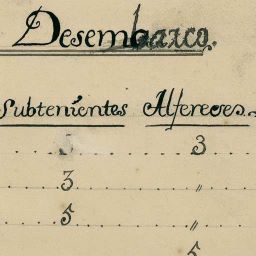 Desembarco.
Subtenientes Alfereces.
3
3 "
5 "
5